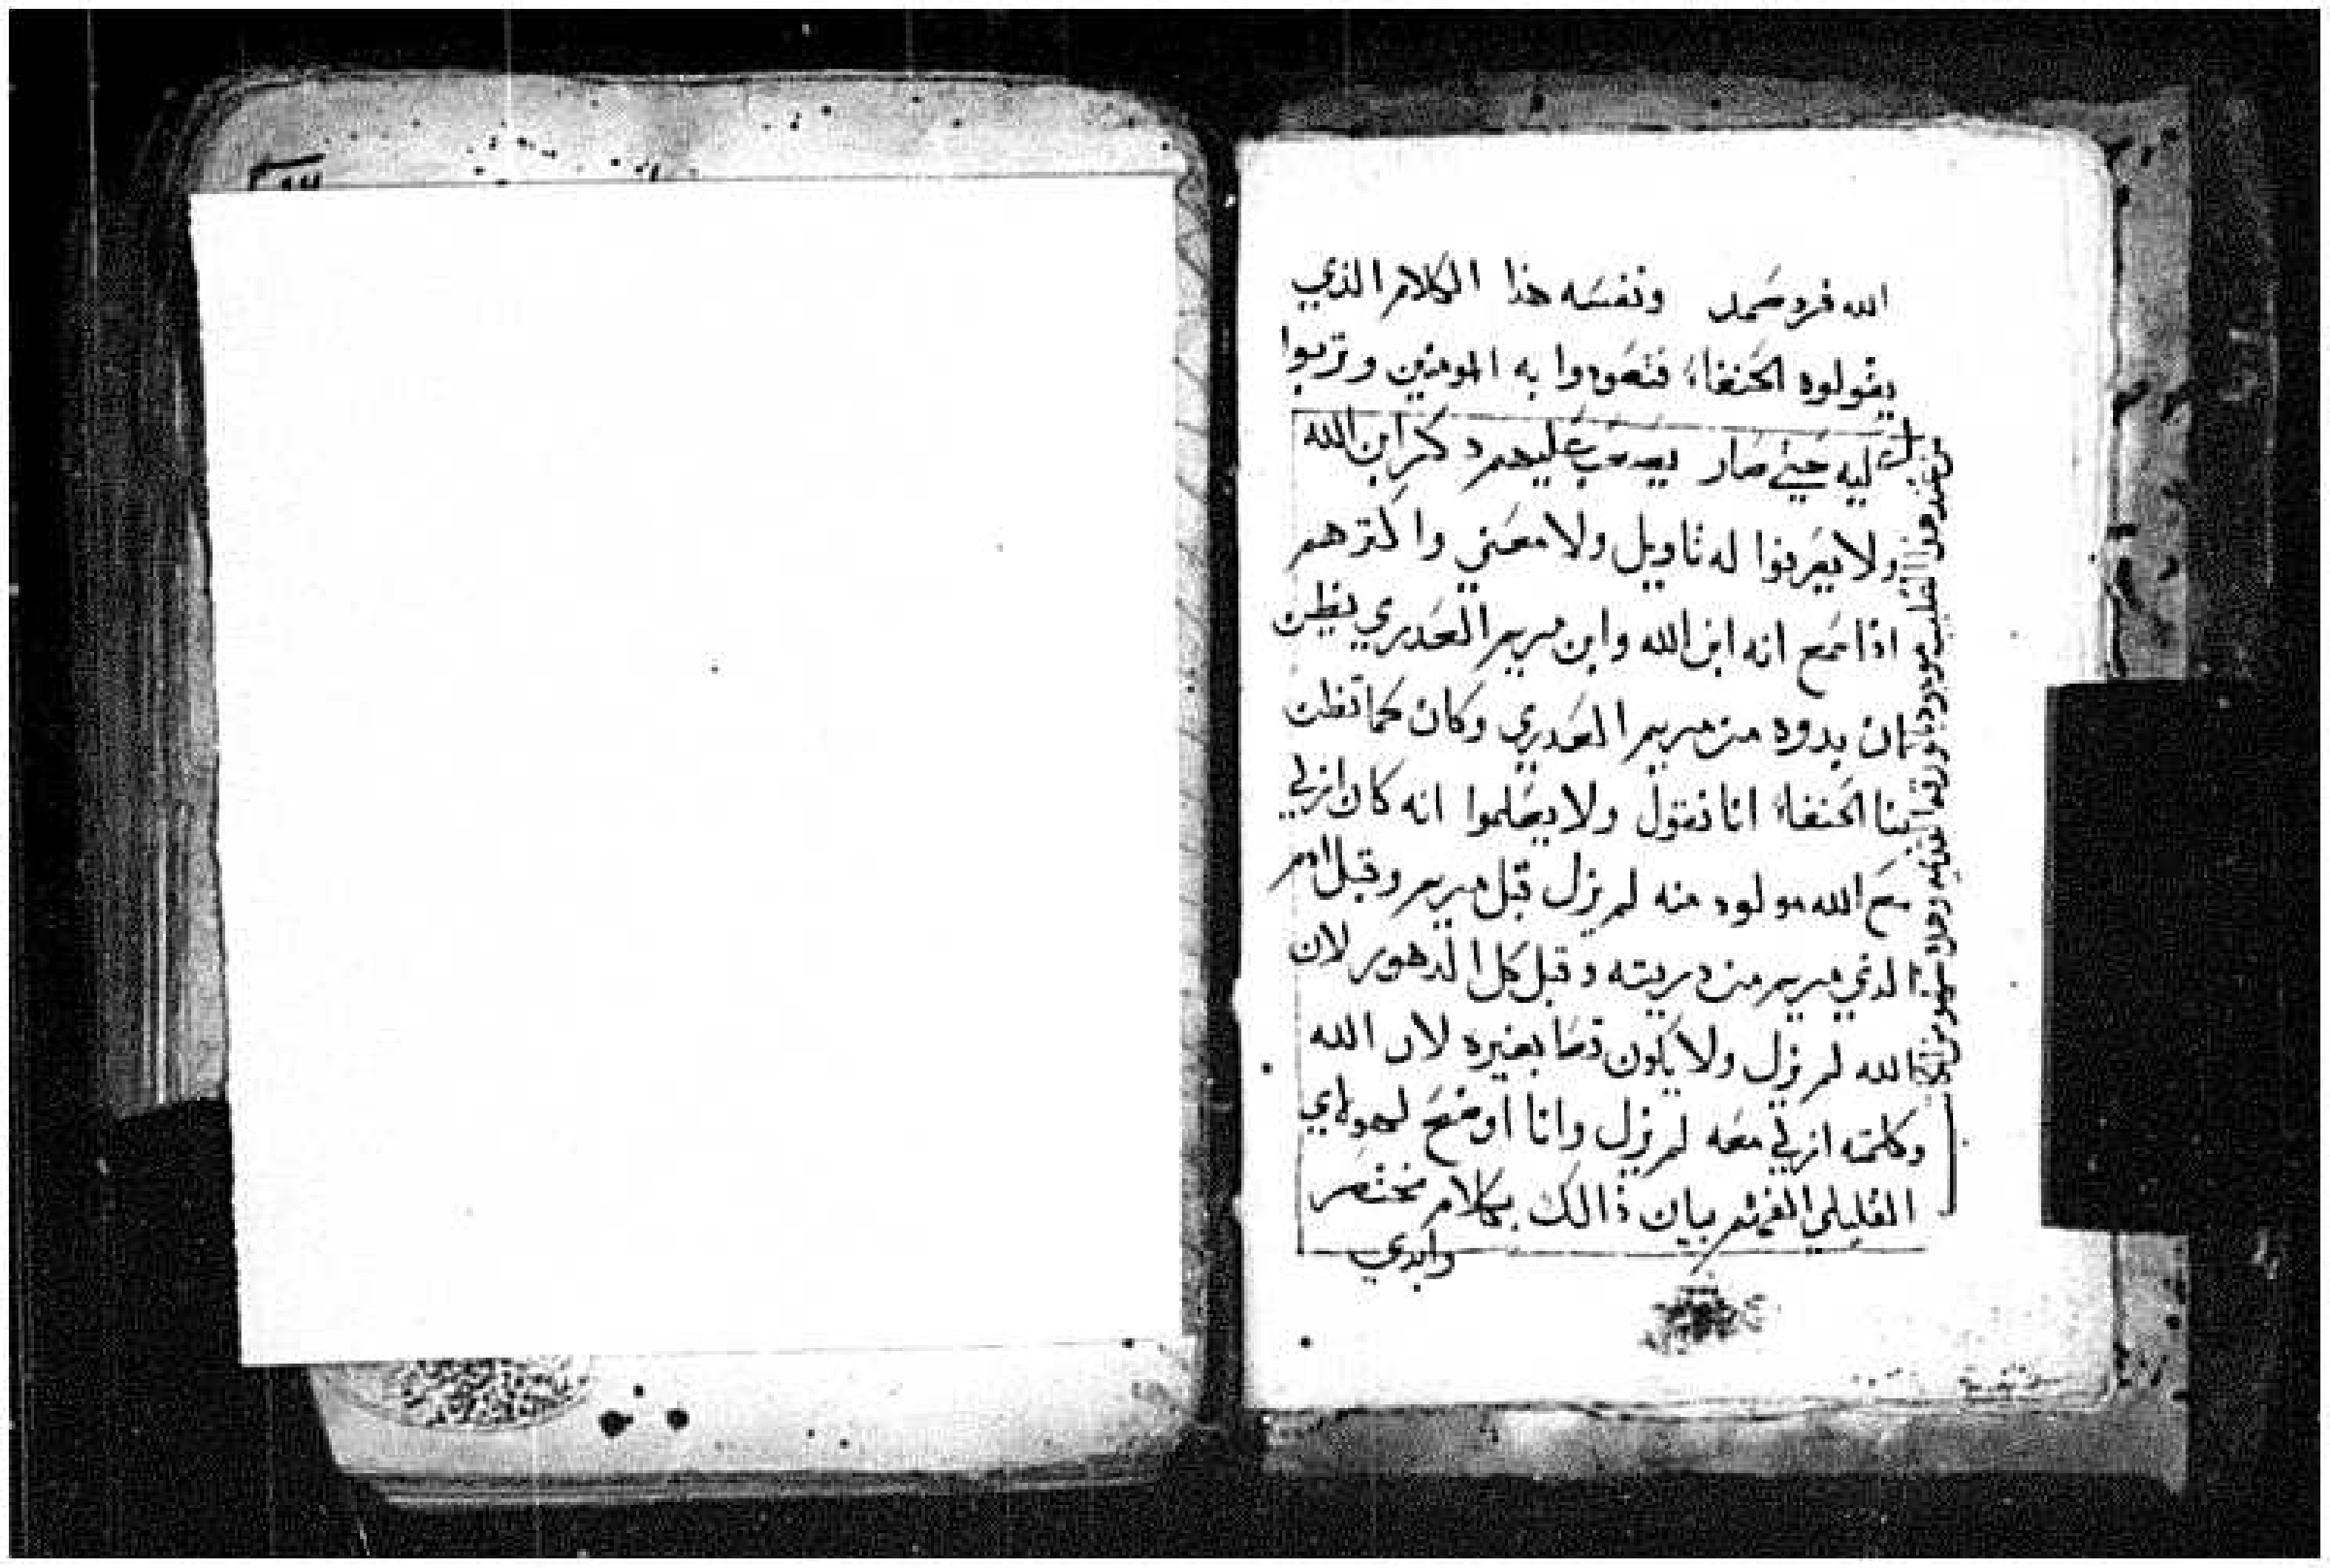 الله فرد صمد ونفسه هذا الكلام الذي
يقولوه الحنفاء فتعودوا به المومنين وتربوا
عليه حتي صار يصعب عليهم دكر ابن الله
ولا يعرفوا له تاويل ولا معني واكترهم
اذا سمع انه ابن الله وابن مريم العدري يظن
ان بدوه من مريم العدري وكان كما تظن
بنا الحنفاء اننا نقول ولا يعلموا انه كان ازلي
مع الله مولود منه لم يزل قبل مريم وقبل ادم
الذي مريم من دريته وقبل كل الدهور لان
الله لم يزل ولا يكون قط بغيره لان الله
وكلمته ازلي معه لم يزل وانا اوضح لهولاي
القليلي الفهم بيان ذالك بكلام مختصر
وابدي
من عند هذا